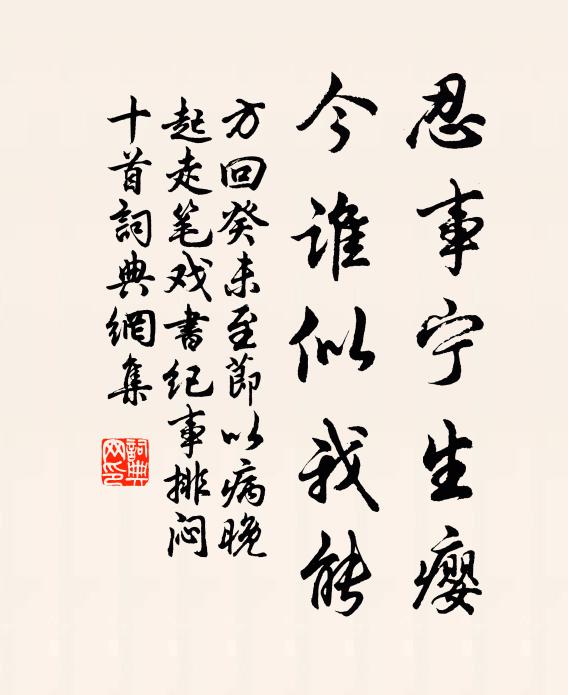 忍事宁生瘿
今谁似我能
方回癸未至節以病晚
起走笔戏書纪事排闷
十首詞典網集
詞典網印